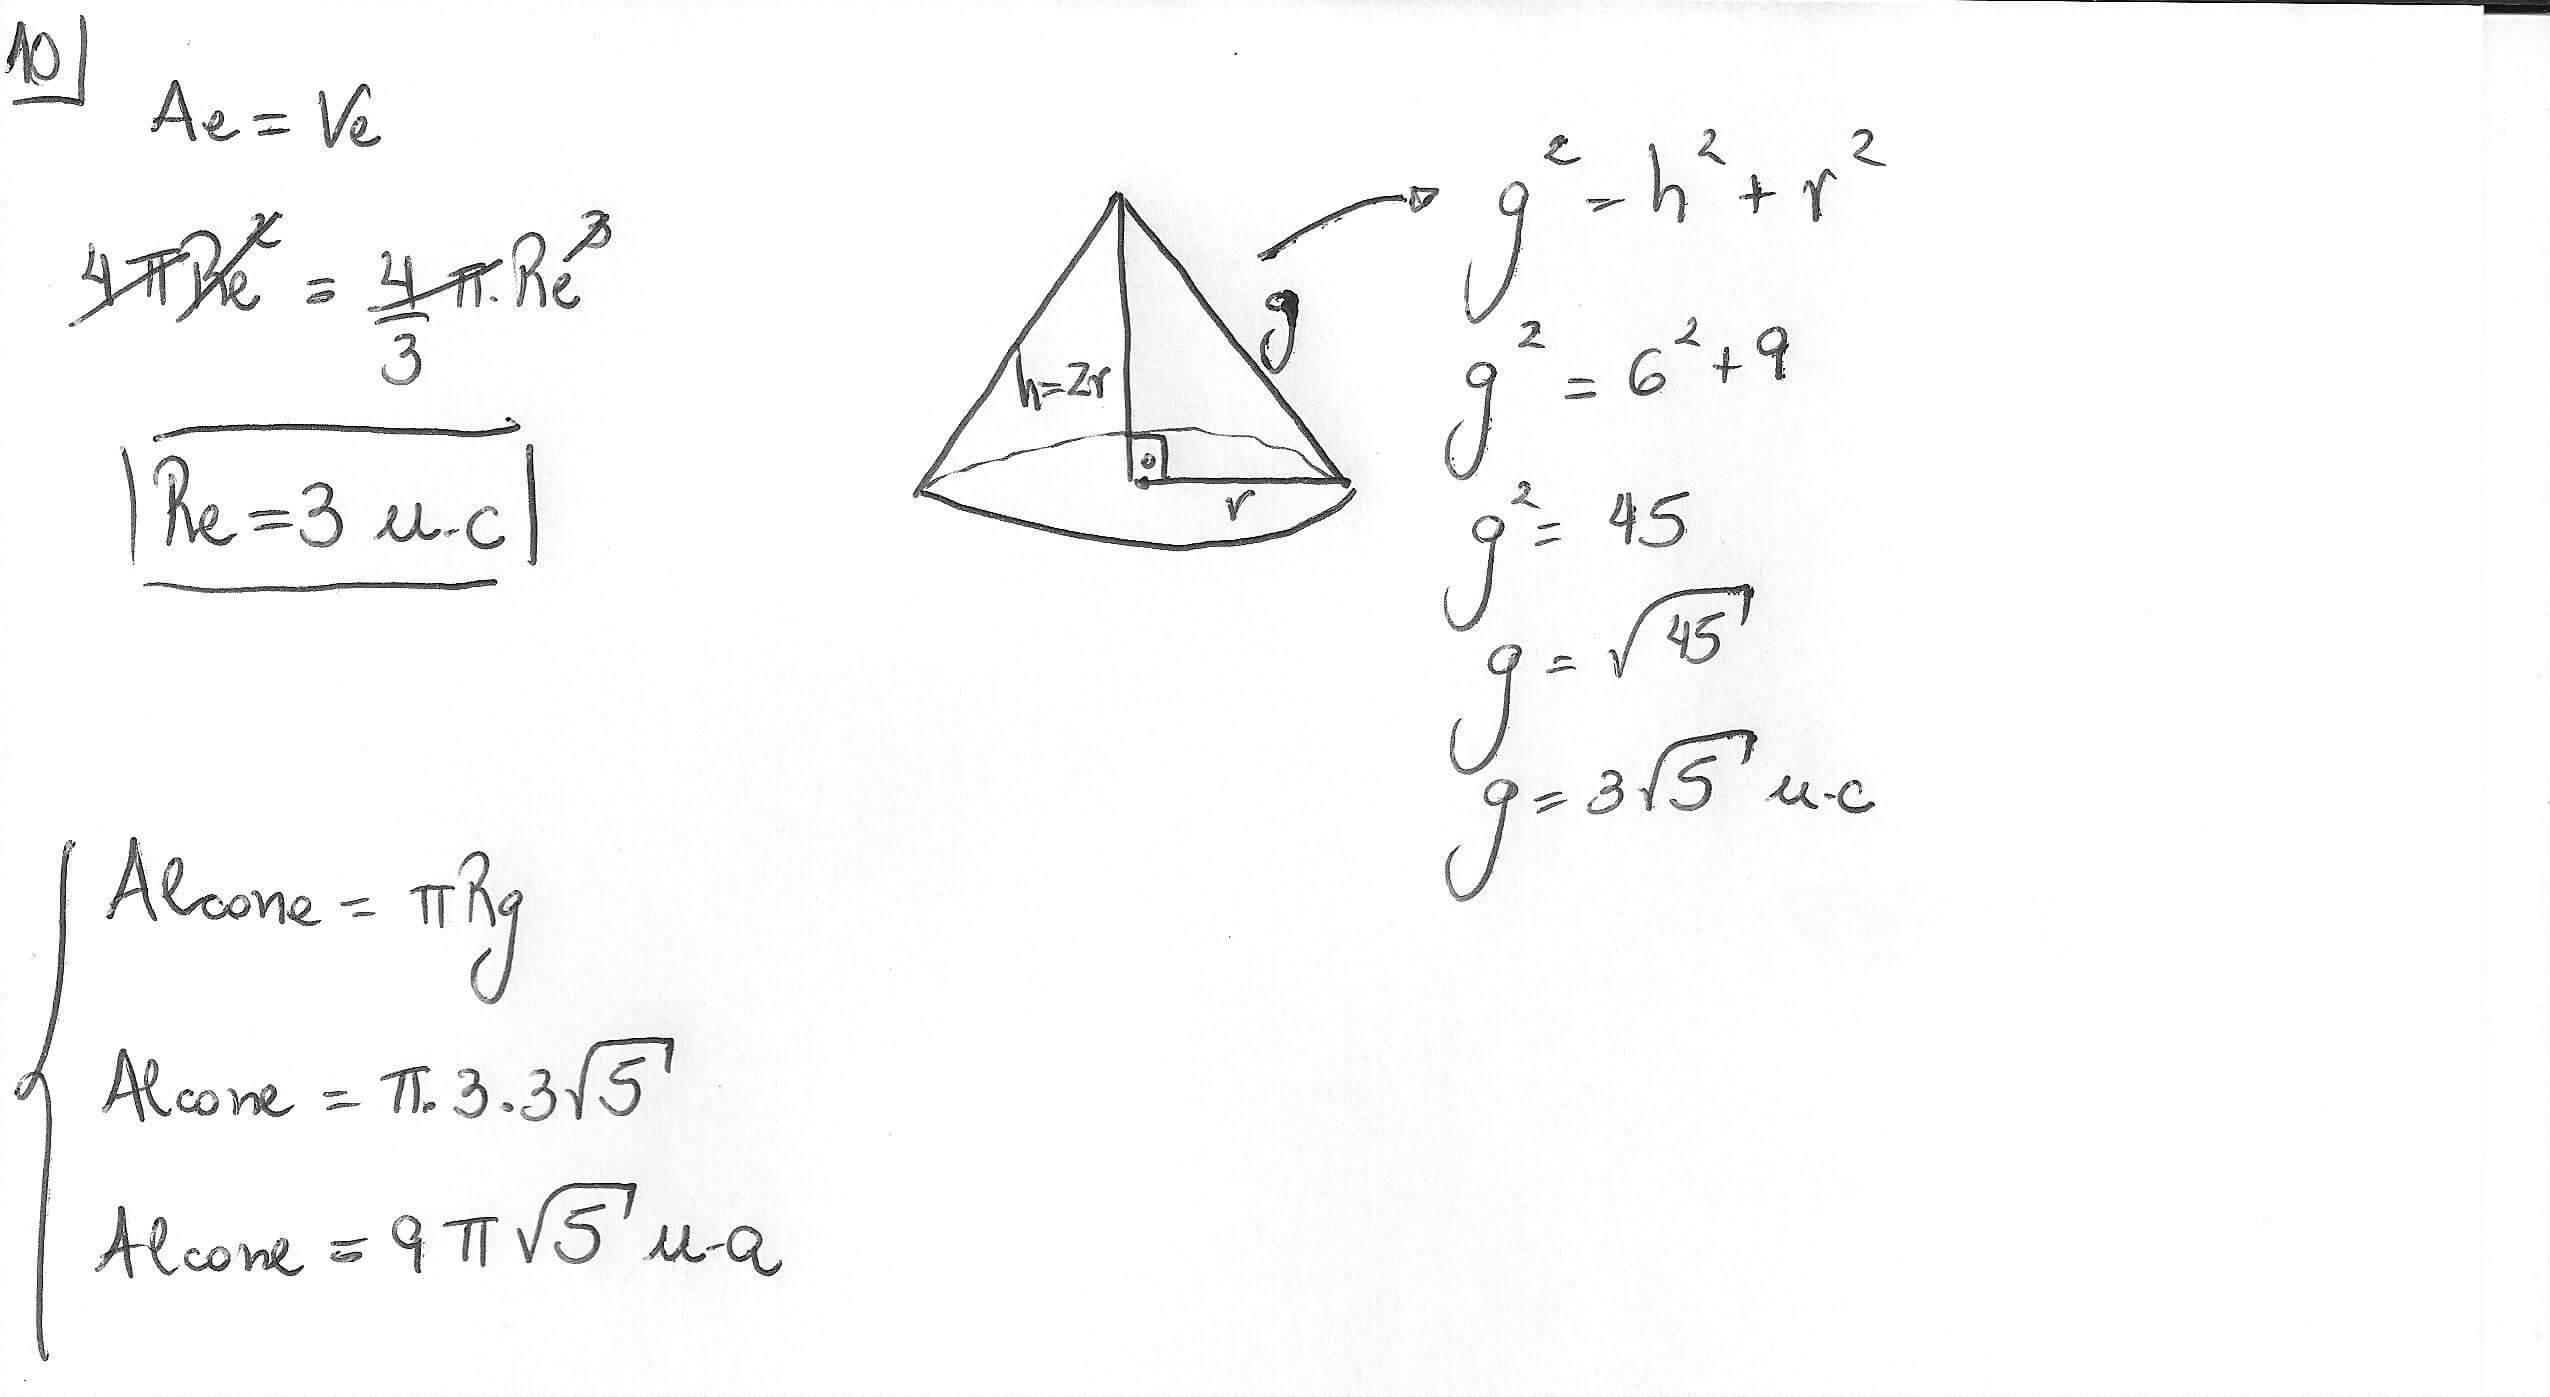 10
Ae = Ve
4πRe² = 4/3 π.Re³
Re = 3 u.c
h=2r
r
g
g² = h² + r²
g² = 6² + 9
g² = 45
g = √45
g = 3√5 u.c
Alcone = πRg
Alcone = π.3.3√5
Alcone = 9π√5 u.a